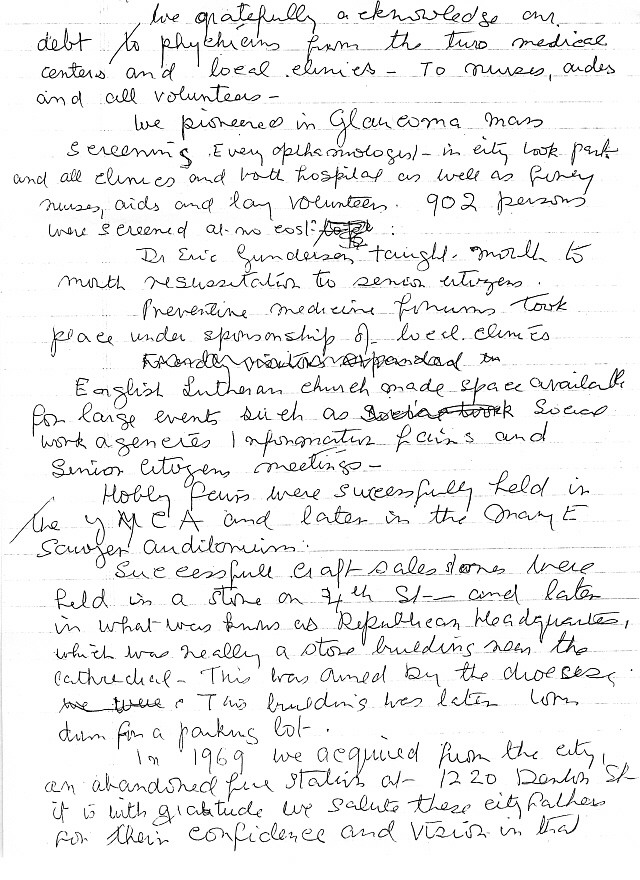 We gratefully acknowledge our
debt to phychicins from the two medical
centers and local clinics - To nurses, aides
and all volunteers -
We pioneered in Glaucoma mass
screening. Every opthamologist - in city took part
and all clinics and both hospital as well as
nurses, aids and lay volunteers. 902 persons
were screened at no cost:
Dr Eric Gunderson taught mouth to
mouth resussitation to senior citizens.
Preventive medicine forums took
place under sponsorship of local clinics
Friendly visitors expanded
English Lutheran church made space available
for large events such as Social work Social
work agencies Information fairs and
Senior Citizens meetings -
Hobby fairs were successfully held in
the YMCA and later in the Mary E
Sawyer auditorium.
Successfull craft sales stores were
held in a store on 4th St - and later
in what was known as Republican Headquarters,
which was really a store building near the
cathredral - This was owned by the diocese.
we were This building was later torn
down for a parking lot -
In 1969 we acquired from the city,
an abandoned fire station at - 1220 Denton St
it is with gratitude we salute these city Fathers
for their confidence and vision in that